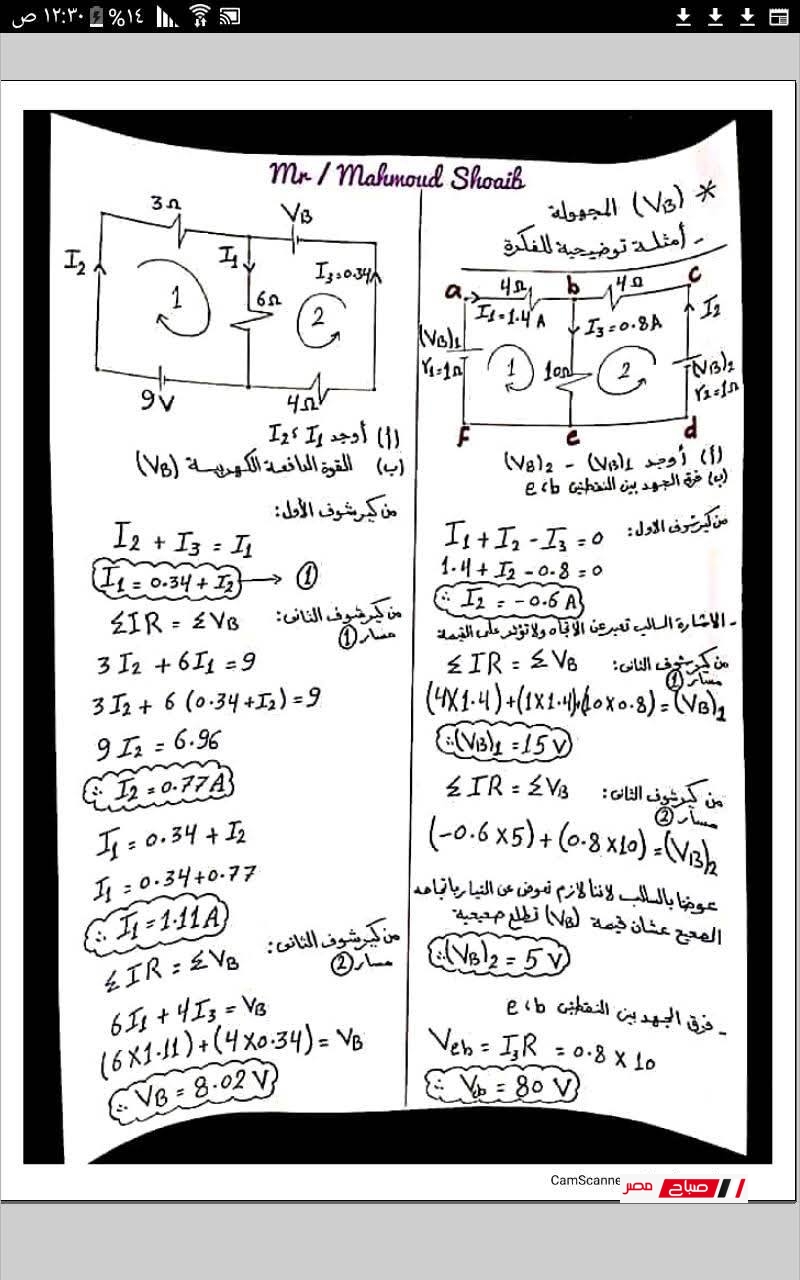 ١٢:٣٠ ص
%١٤
Mr / Mahmoud Shoaib
* (VB) المجهولة
- أمثلة توضيحية للفكرة
a
4Ω
b
4Ω
c
I1=1.4A
I3=0.8A
I2
(VB)1
r1=1Ω
1
10Ω
2
(VB)2
r2=1Ω
f
e
d
(أ) أوجد (VB)1 - (VB)2
(ب) فرق الجهد بين النقطتين e،b
من كيرشوف الاول:
I1 + I2 - I3 = 0
1.4 + I2 - 0.8 = 0
∴ I2 = -0.6 A
- الاشارة السالب تعبر عن الاتجاه ولا تؤثر على القيمة
من كيرشوف الثانى: ΣIR = ΣVB
مسار ①
(4X1.4)+(1X1.4)+(10X0.8)=(VB)1
∴(VB)1 = 15 V
من كيرشوف الثانى: ΣIR = ΣVB
مسار ②
(-0.6X5)+(0.8X10)=(VB)2
عوضنا بالسالب لاننا لازم نعوض عن التيار باتجاهه
الصحيح عشان قيمة (VB) تطلع صحيحة
∴(VB)2 = 5 V
- فرق الجهد بين النقطتين e،b
Veb = I3R = 0.8 X 10
∴ Veb = 80 V
3Ω
VB
I2
I1
I3=0.34
1
6Ω
2
9V
4Ω
(أ) أوجد I1 ، I2
(ب) القوة الدافعة الكهربية (VB)
من كيرشوف الأول:
I2 + I3 = I1
I1 = 0.34 + I2 → ①
من كيرشوف الثانى: ΣIR = ΣVB
مسار ①
3I2 + 6I1 = 9
3I2 + 6 (0.34+I2) = 9
9I2 = 6.96
∴ I2 = 0.77A
I1 = 0.34 + I2
I1 = 0.34+0.77
∴ I1 = 1.11A
من كيرشوف الثانى: ΣIR = ΣVB
مسار ②
6I1 + 4I3 = VB
(6X1.11)+(4X0.34) = VB
∴ VB = 8.02 V
CamScanne
صباح مصر